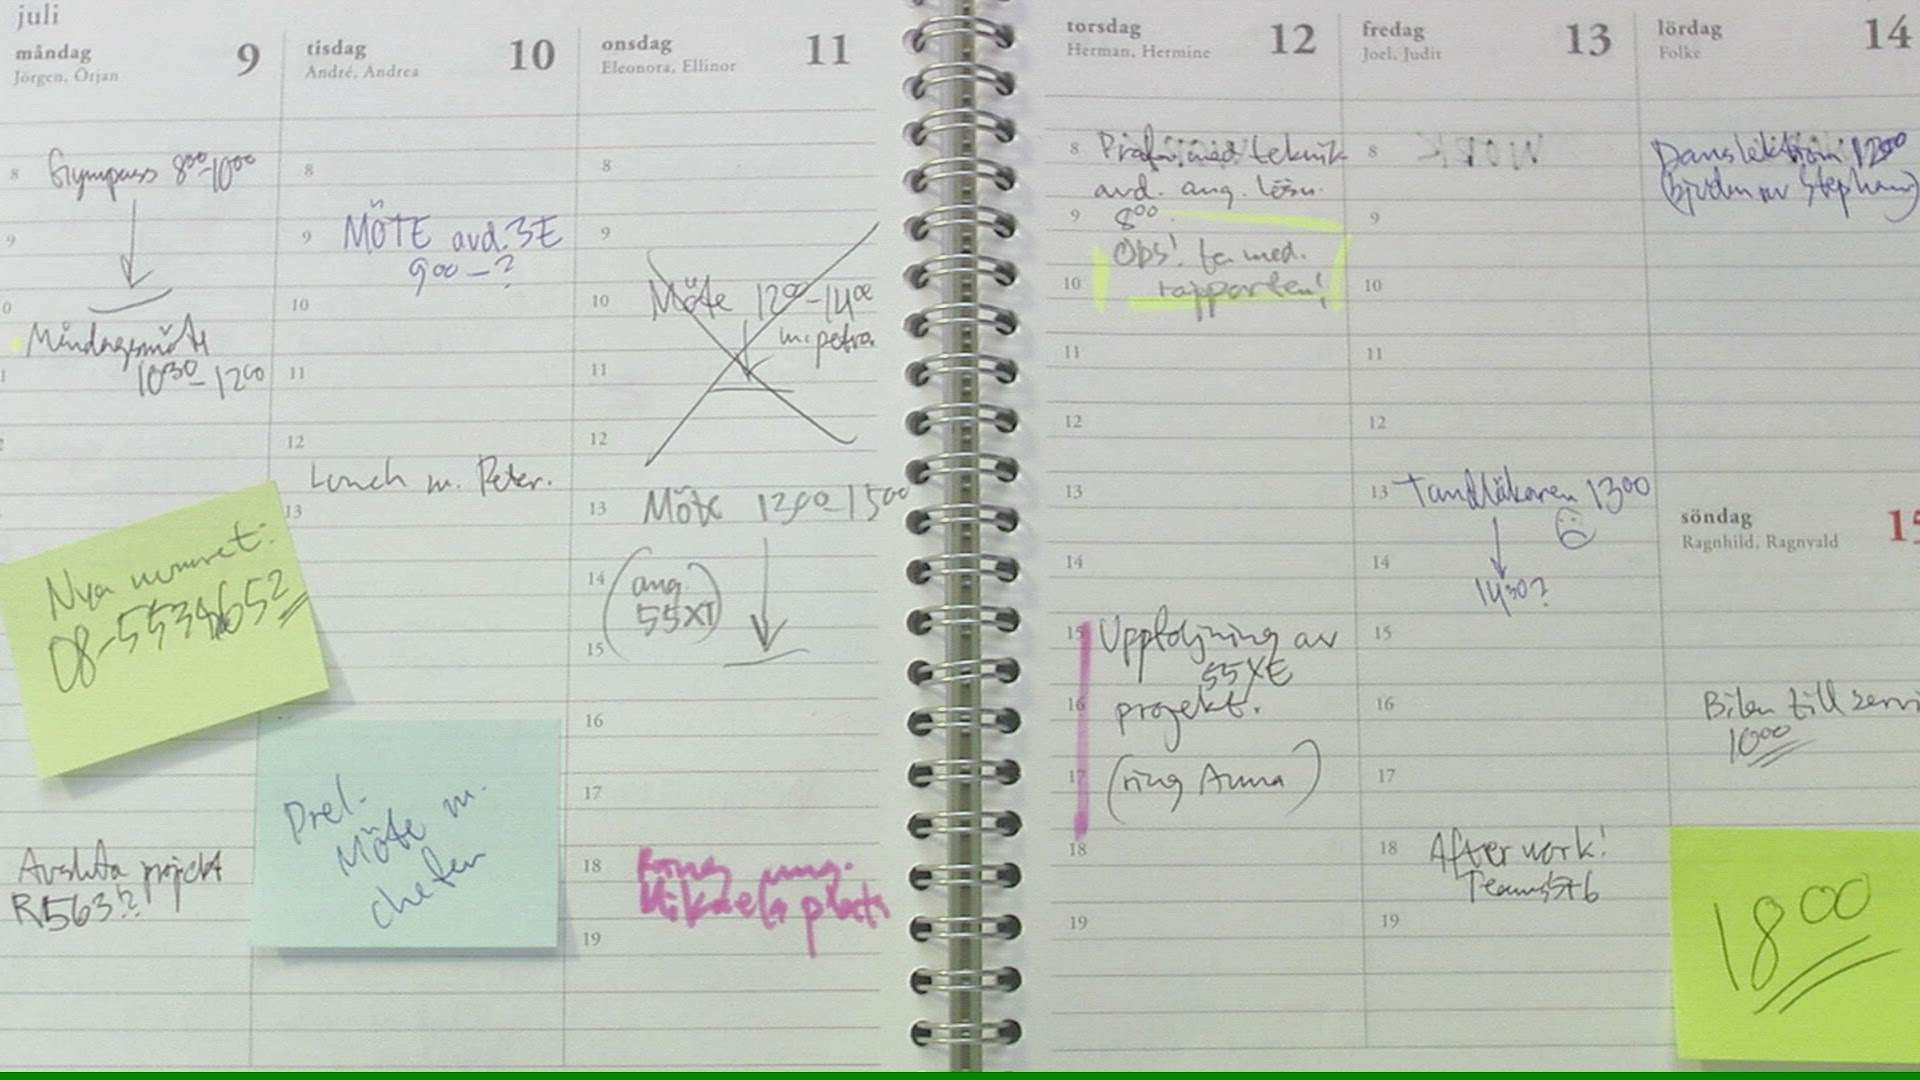 juli
måndag 9
Jörgen, Örjan
8 Gympass 8⁰⁰-10⁰⁰
9
0
Måndagsmöte
10³⁰-12⁰⁰
1
2
Nya numret:
Avsluta projekt
R563??
tisdag 10
André, Andrea
8
9 MÖTE avd. 3E
9⁰⁰-?
10
11
12
Lunch m. Peter.
13
Prel.
Möte m.
chefen
onsdag 11
Eleonora, Ellinor
8
9
10 Möte 12⁰⁰-14⁰⁰
m. petra
11
12
13 Möte 13⁰⁰-15⁰⁰
14 (ang.
55XT)
15
16
17
18 Ring ang.
Mikaela plats
19
torsdag 12
Herman, Hermine
8 med teknik
avd. ang.
9 8⁰⁰.
Obs! ta med.
10 rapporten!
11
12
13
14
15 Uppföljning av
55XE
16 projekt.
17 (ring Anna)
18
19
fredag 13
Joel, Judit
8
9
10
11
12
13 Tandläkaren 13⁰⁰
14
14³⁰?
15
16
17
18 After work!
19
lördag 14
Folke
Danslektion 12⁰⁰
(bjuden av Stephan)
söndag 15
Ragnhild, Ragnvald
Bilen till servi
10⁰⁰
18⁰⁰